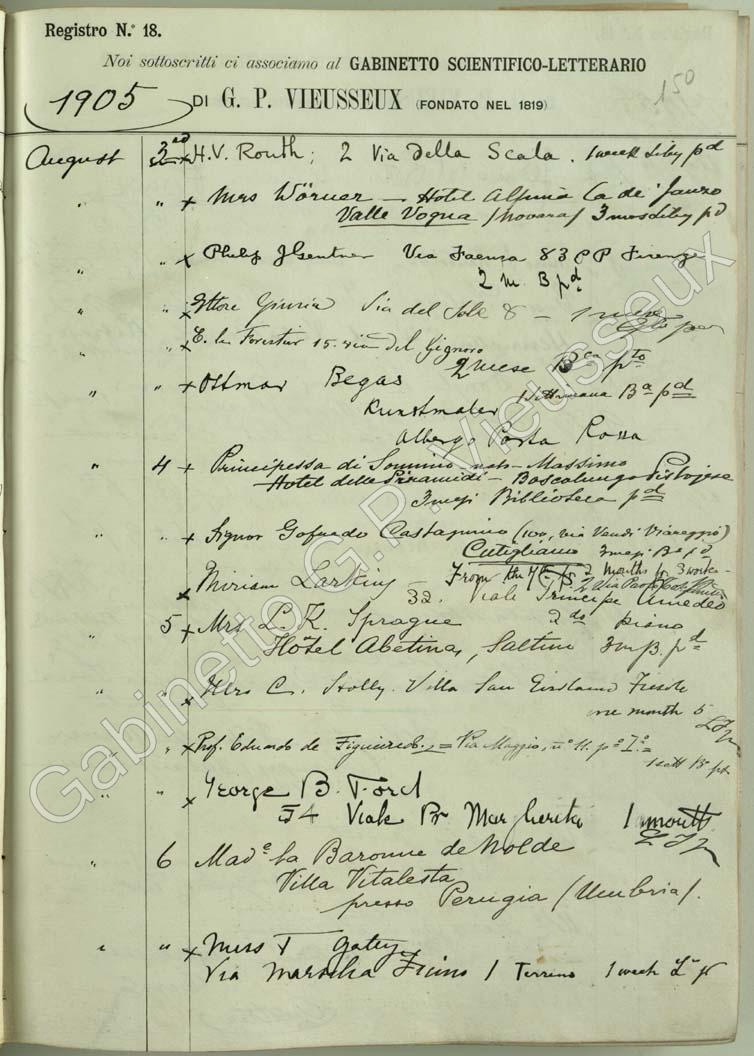 Registro N.° 18.
150
Noi sottoscritti ci associamo al GABINETTO SCIENTIFICO-LETTERARIO
1905 DI G. P. VIEUSSEUX (FONDATO NEL 1819)
August 3rd x H.V. Routh; 2 Via della Scala. 1 week pd
" " x Mrs Wörner — Hotel Alpina Ca de Janzo
Valle Vogna (Novara) 3 mos pd
" " x Philip J Gentner Via Faenza 83 PP Firenze
2 m. B pd
" " x Ettore Giunia Via del Sole 8 — 1 mese
" " x E. le Forestier 15. via del Signore
2 mese Bca pto
" " x Ottmar Begas 1 settimana Ba pd
Kunstmaler
Albergo Porta Rossa
" 4 x Principessa di Sonnino nata Massimo
Hotel delle Piramidi — Boscolungo Pistojese
3 mesi Biblioteca pd
" " x Signor Gofredo Castagnino (100, via Viareggio)
Cutigliano 3 mesi Ba pd
x Miriam Larking — From the 4th 2 months
32. Viale Principe Amedeo
" 5 x Mrs L. K. Sprague 2do piano
Hôtel Abetina, Saltino 3 m B. pd
" " x Mrs C. Stolly. Villa San Girolamo Fiesole
one month 5
" " x Prof. Eduardo de Figueiredo, = Via Maggio, no 11. po Io =
1 sett Ba pd
" " x George B. Ford
54 Viale Pr Margherita 1 month
" 6 Made la Baronne de Nolde
Villa Vitalesta
presso Perugia (Umbria).
" " x Miss T Gatey
Via Marsilio Ficino 1 Terreno 1 week
Gabinetto G. P. Vieusseux